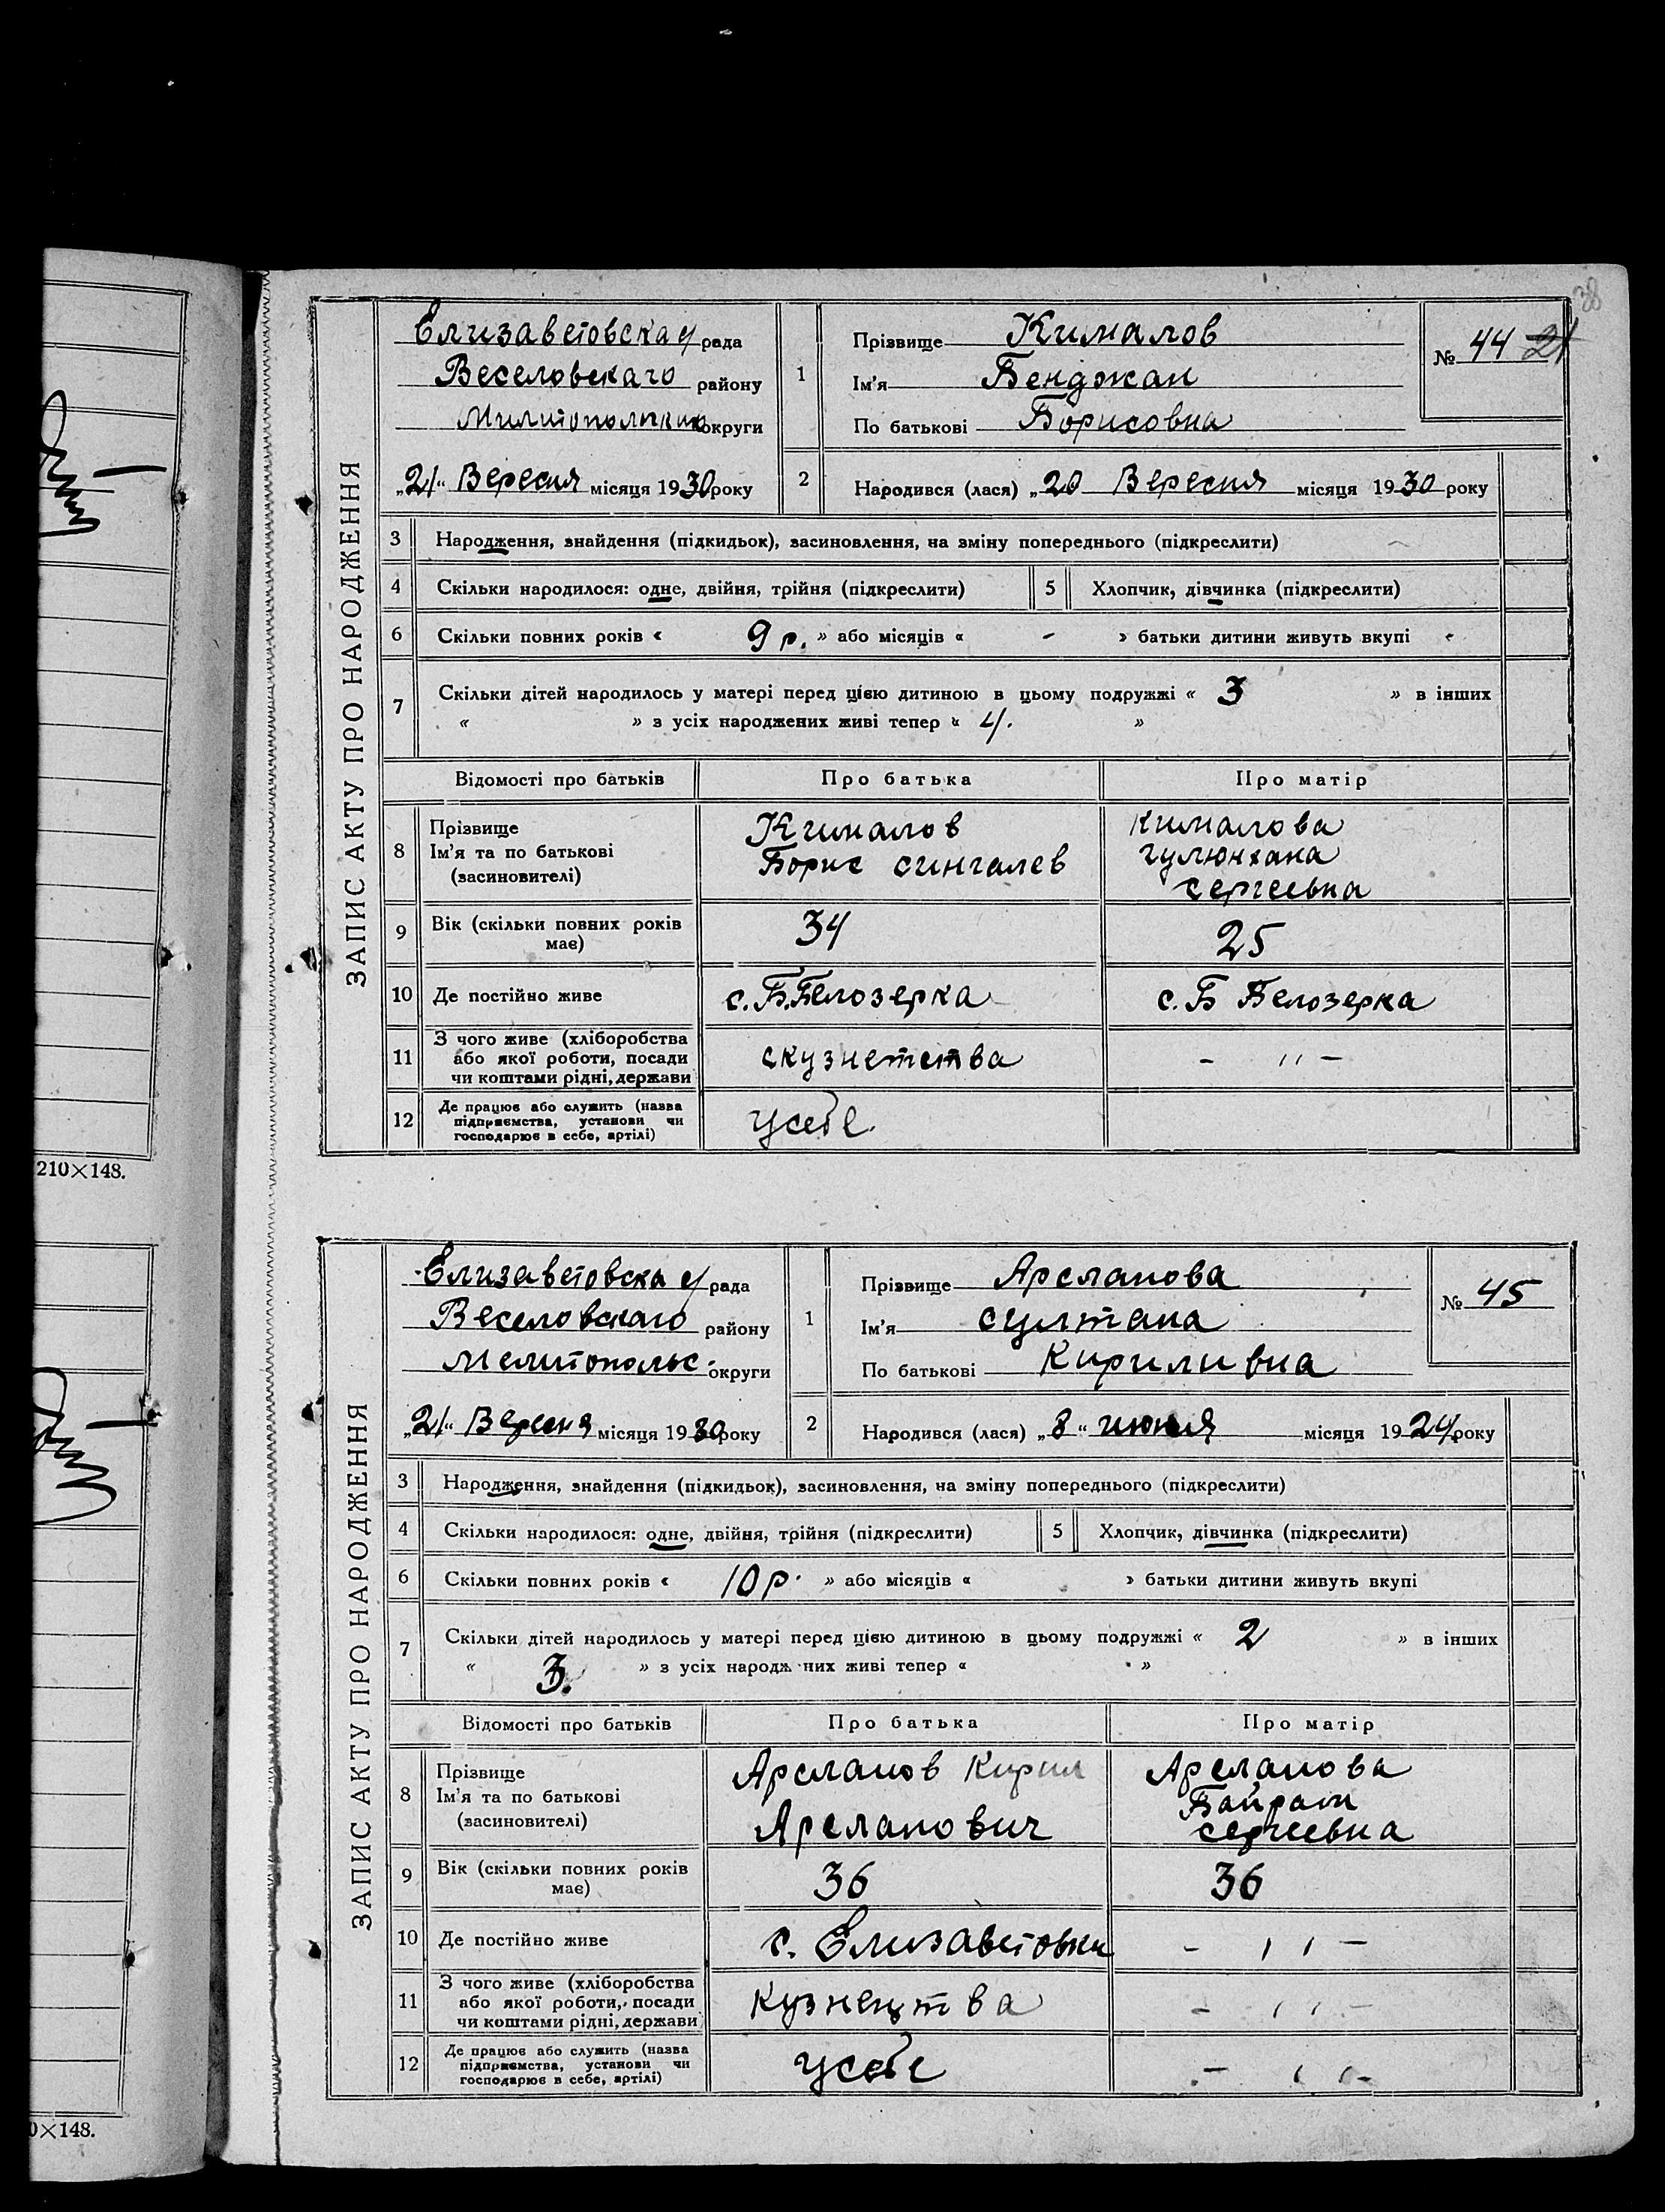 38
ЗАПИС АКТУ ПРО НАРОДЖЕННЯ
Елизаветовская рада
Веселовскаго району
округи
„21“ Вересня місяця 1930 року
1
Прізвище Кималов
Ім'я Бенджан
По батькові Борисовна
№ 44 21
2
Народився (лася) „20 Вересня місяця 1930 року
3 Народження, знайдення (підкидьок), засиновлення, на зміну попереднього (підкреслити)
4 Скільки народилося: одне, двійня, трійня (підкреслити) 5 Хлопчик, дівчинка (підкреслити)
6 Скільки повних років « 9 р. » або місяців « - » батьки дитини живуть вкупі
7 Скільки дітей народилось у матері перед цією дитиною в цьому подружжі « 3 » в інших
« » з усіх народжених живі тепер « 4. »
Відомості про батьків Про батька Про матір
8 Прізвище
Ім'я та по батькові
(засиновителі)
Кималов
Борис сингалев
Кималова
гулюнхана
сергеевна
9 Вік (скільки повних років має) 34 25
10 Де постійно живе с. Б. Белозерка с. Б Белозерка
11 З чого живе (хліборобства
або якої роботи, посади
чи коштами рідні, держави
скузнетства - ,, -
12 Де працює або служить (назва
підприємства, установи чи
господарює в себе, артілі)
усебе.
210×148.
ЗАПИС АКТУ ПРО НАРОДЖЕННЯ
Елизаветовская рада
Веселовскаго району
Мелитопольс. округи
„21“ Вересня місяця 1930 року
1
Прізвище Арсланова
Ім'я султана
По батькові Кириливна
№ 45
2
Народився (лася) „8“ июня місяця 1924 року
3 Народження, знайдення (підкидьок), засиновлення, на зміну попереднього (підкреслити)
4 Скільки народилося: одне, двійня, трійня (підкреслити) 5 Хлопчик, дівчинка (підкреслити)
6 Скільки повних років « 10 р. » або місяців « » батьки дитини живуть вкупі
7 Скільки дітей народилось у матері перед цією дитиною в цьому подружжі « 2 » в інших
« 3. » з усіх народж них живі тепер « »
Відомості про батьків Про батька Про матір
8 Прізвище
Ім'я та по батькові
(засиновителі)
Арсланов Кирил
Арсланович
Арсланова
Байрам
сергеевна
9 Вік (скільки повних років має) 36 36
10 Де постійно живе с. Елизаветовки - ,, -
11 З чого живе (хліборобства
або якої роботи, посади
чи коштами рідні, держави
кузнецтва - ,, -
12 Де працює або служить (назва
підприємства, установи чи
господарює в себе, артілі)
усебе - ,, -
0×148.